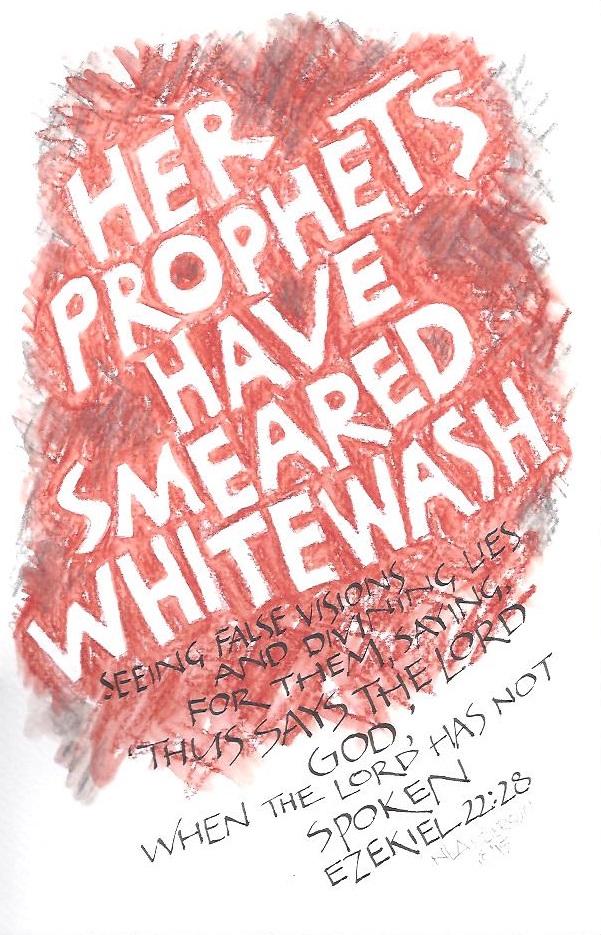 HER
PROPHETS
HAVE
SMEARED
WHITEWASH
SEEING FALSE VISIONS
AND DIVINING LIES
FOR THEM, SAYING,
'THUS SAYS THE LORD
GOD,'
WHEN THE LORD HAS NOT
SPOKEN
EZEKIEL 22:28